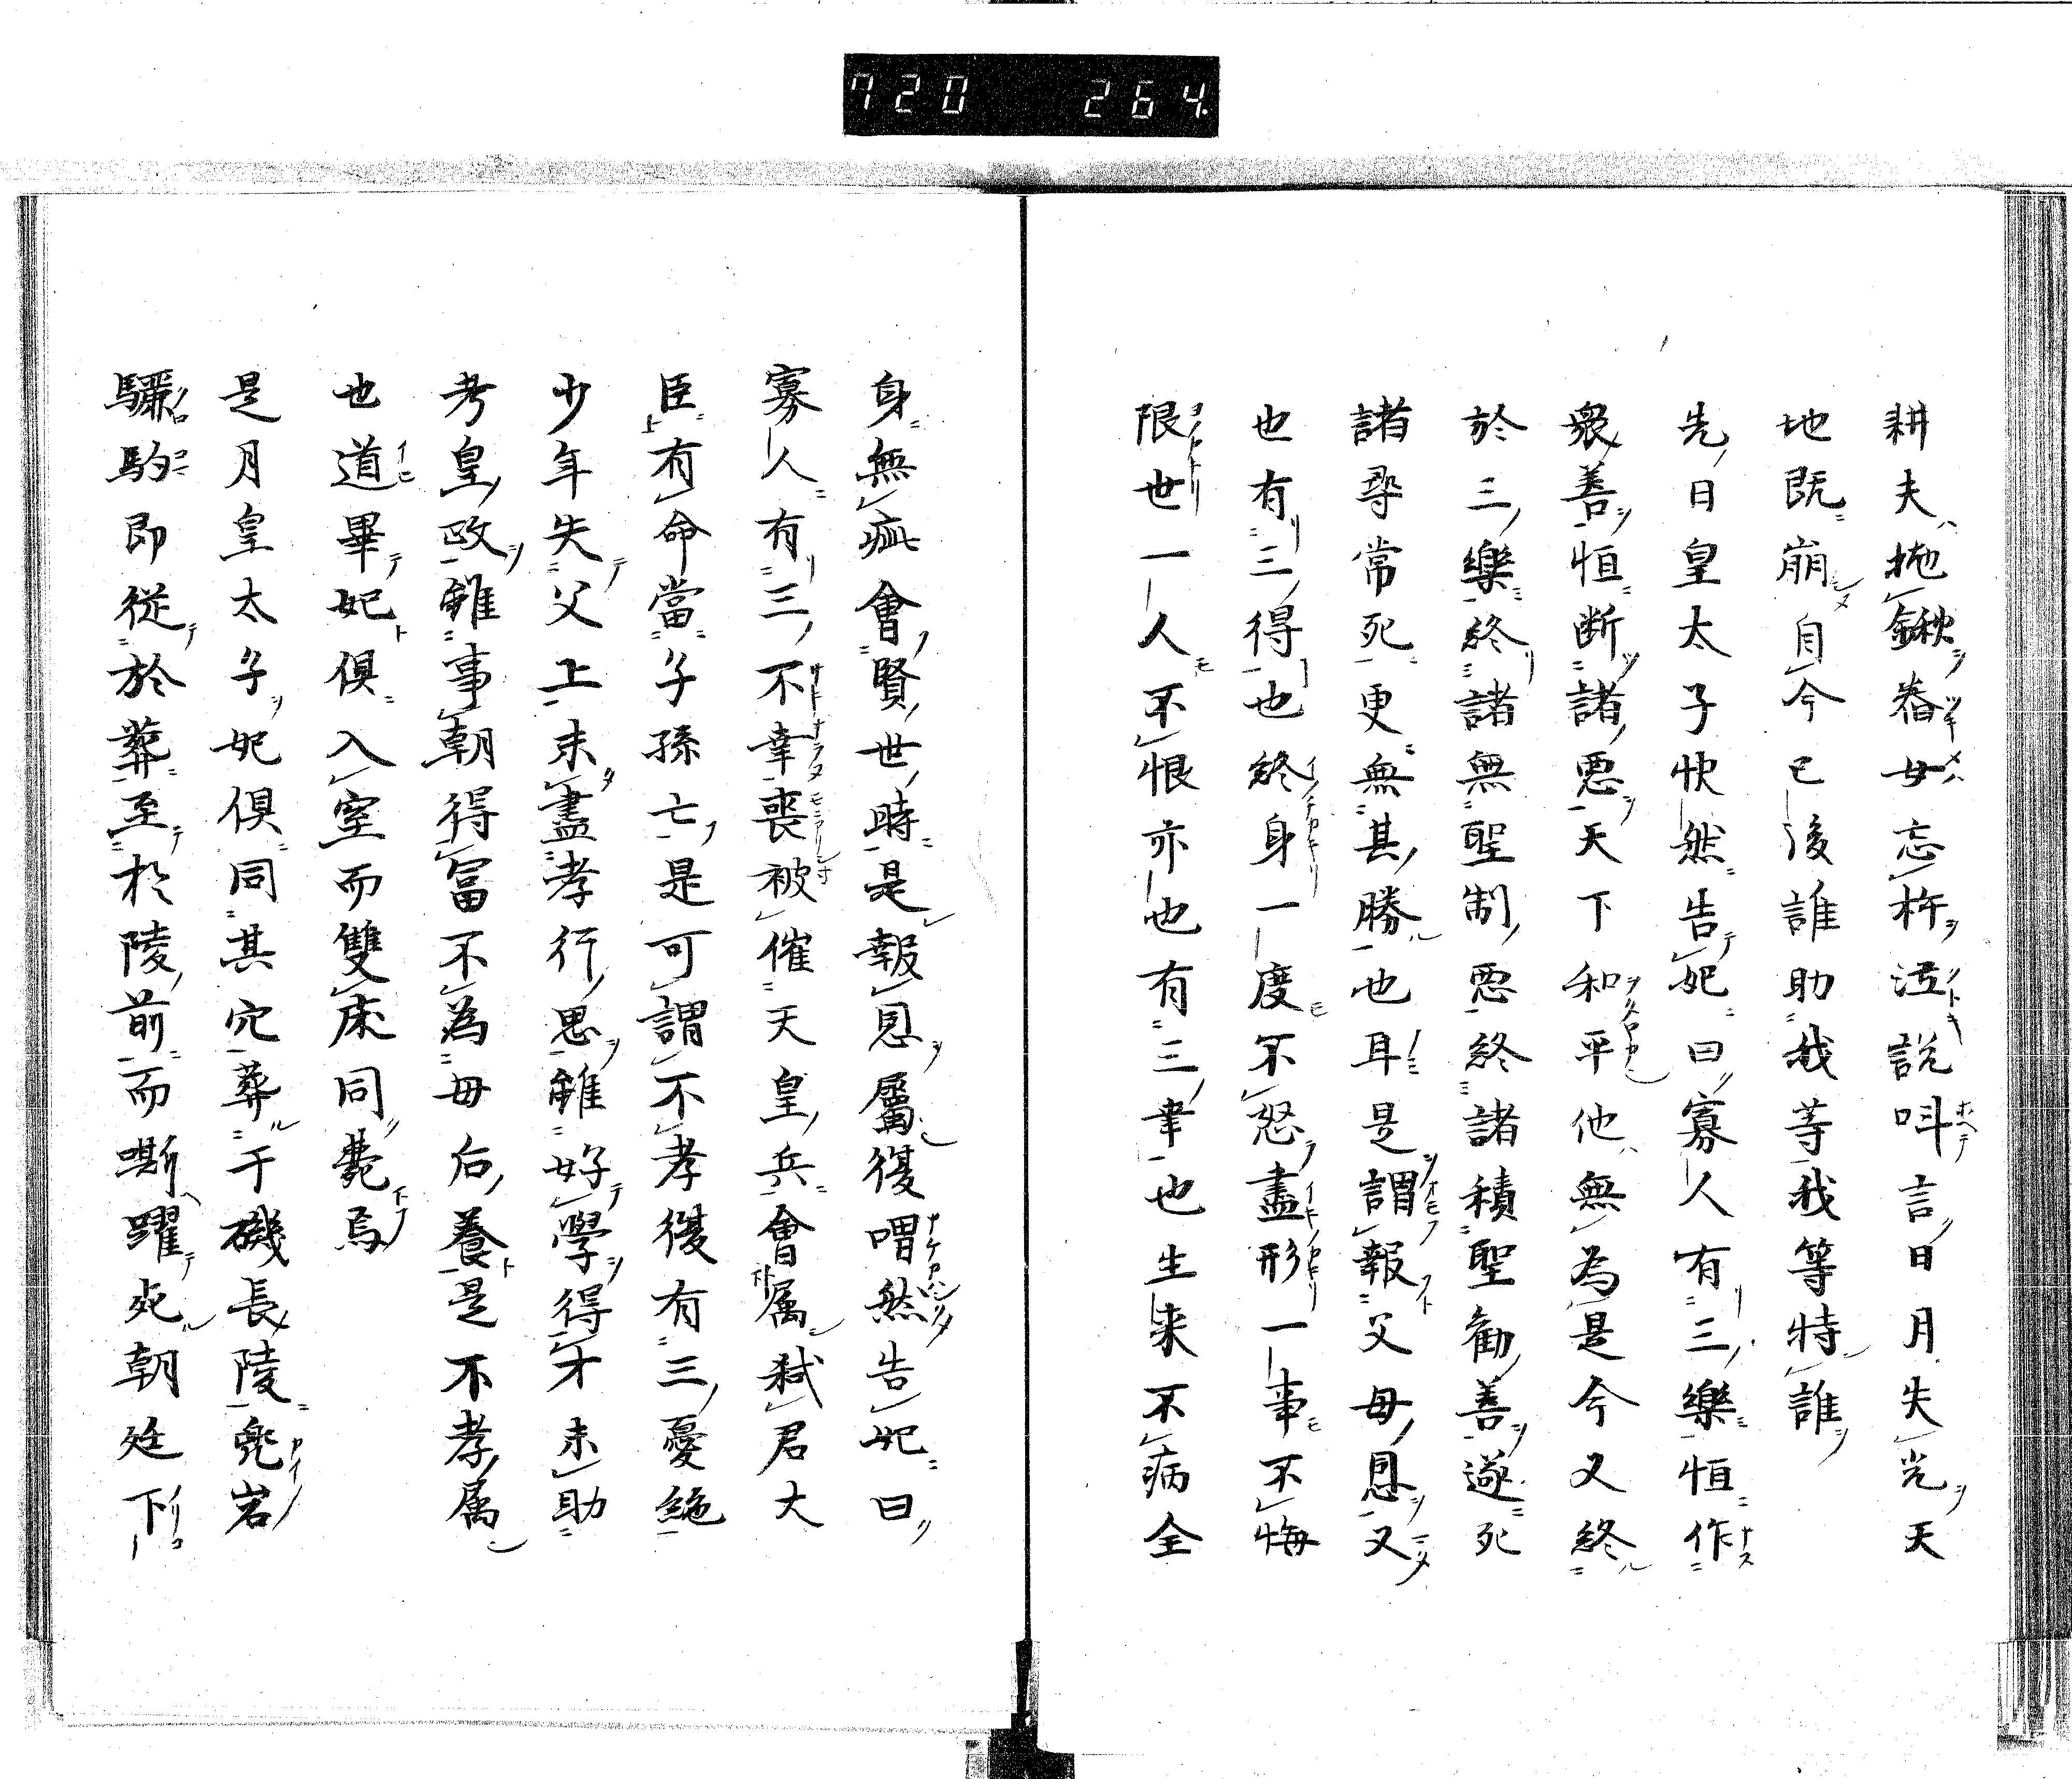 720 264
耕夫抛鍬舂女忘杵泣說呌言日月失光天
地既崩自今已後誰助我等我等恃誰
先日皇太子快然告妃曰寡人有三樂恒作
衆善恒断諸惡天下和平他無為是今又終
於三樂終諸無聖制惡終諸積聖勸善遂死
諸尋常死更無其勝也耳是謂報父母恩又
也有三得也終身一度不怒盡形一事不悔
限世一人不恨亦也有三幸也生来不病全
身無疵會賢世時是報恩屬復喟然告妃曰
寡人有三不幸喪被催天皇兵會属弑君大
臣有命當子孫亡是可謂不孝復有三憂絶
少年失父上未盡孝行思雖好學得才未助
考皇政雖事朝得冨不為母后養是不孝属
也道畢妃俱入室而雙床同薨焉
是月皇太子妃俱同其穴葬于磯長陵兠岩
驪駒即從於葬至於陵前而嘶躍死朝廷下